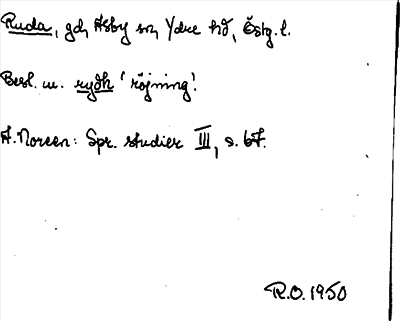 Ruda, gd, Asby sn, Ydre hd, Östg. l.
Besl. m. rydh 'röjning'.
A. Noreen: Spr. studier III, s. 67.
R.O. 1950